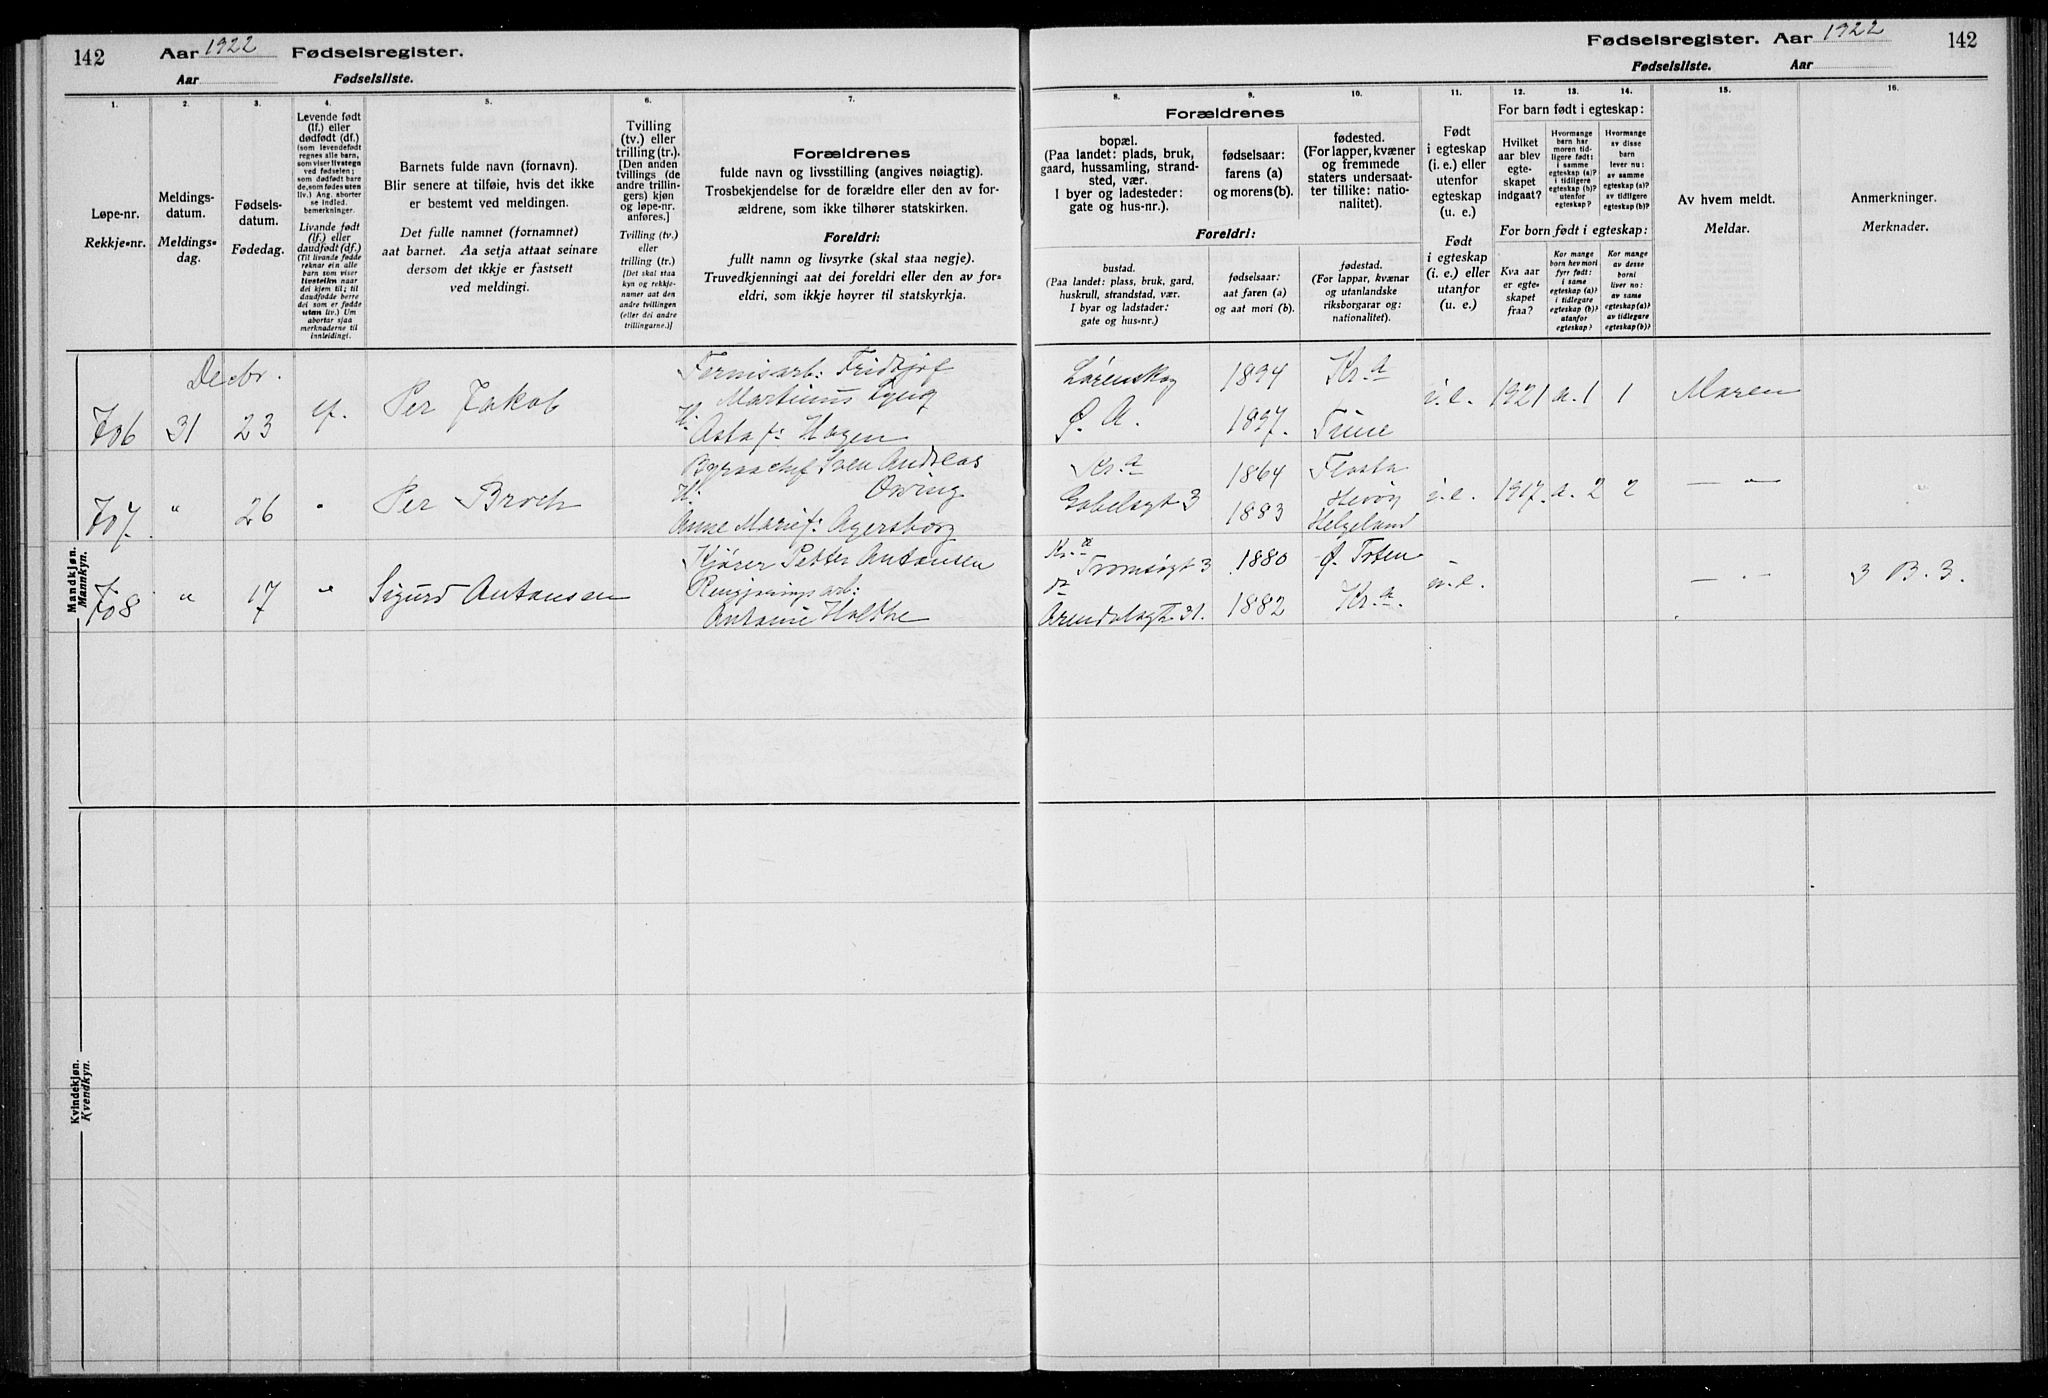 142 Aar 1922 Fødselsregister.
Aar Fødselsliste.
Fødselsregister. Aar 1922 142
Fødselsliste. Aar
1. 2. 3. 4. 5. 6. 7.
Løpe-nr.
Rekkje-nr.
Meldings-
datum.
Meldings-
dag.
Fødsels-
datum.
Fødedag.
Levende født
(lf.) eller
dødfødt (df.)
(som levendefødt
regnes alle barn,
som viser livstegn
ved fødselen;
som dødfødt bare
de, som fødes uten
liv.) Ang. aborter
se indled.
bemerkninger.
Livande født
(lf.) eller
daudfødt (df.)
(Til livande fødde
reknar ein alle
barn som viser
livsteikn naar
dei kjem til; til
daudfødde berre
dei som er fødde
utan liv.) Um
abortar sjaa
merknaderne til
innleidingi.
Barnets fulde navn (fornavn).
Blir senere at tilføie, hvis det ikke
er bestemt ved meldingen.
Det fulle namnet (fornamnet)
aat barnet. Aa setja attaat seinare
dersom det ikkje er fastsett
ved meldingi.
Tvilling
(tv.) eller
trilling (tr.).
[Den anden
tvillings (de
andre trillin-
gers) kjøn
og løpe-nr.
anføres.]
Tvilling (tv.)
eller
trilling (tr.)
[Det skal staa
kyn og rekkje-
numer aat den
andre tvillingen
(eller dei andre
trillingarne.)]
Forældrenes
fulde navn og livsstilling (angives nøiagtig).
Trosbekjendelse for de forældre eller den av for-
ældrene, som ikke tilhører statskirken.
Foreldri:
fullt namn og livsyrke (skal staa nøgje).
Truvedkjenningi aat dei foreldri eller den av for-
eldri, som ikkje høyrer til statskyrkja.
8. 9. 10. 11. 12. 13. 14. 15. 16.
Forældrenes
bopæl.
(Paa landet: plads, bruk,
gaard, hussamling, strand-
sted, vær.
I byer og ladesteder:
gate og hus-nr.).
fødselsaar:
farens (a)
og morens (b).
fødested.
(For lapper, kvæner
og fremmede
staters undersaat-
ter tillike: natio-
nalitet).
Foreldri:
bustad.
(Paa landet: plass, bruk, gard,
huskrull, strandstad, vær.
I byar og ladstader:
gate og hus-nr.)
fødselsaar:
aat faren (a)
og aat mori (b).
fødestad.
(For lappar, kvænar
og utanlandske
riksborgarar og:
nationalitet).
Født
i egteskap
(i. e.) eller
utenfor
egteskap
(u. e.)
Født
i egteskap
(i. e.) eller
utanfor
(u. e.)
For barn født i egteskap:
Hvilket
aar blev
egte-
skapet
indgaat?
Hvormange
barn har
moren tid-
ligere født:
i samme
egteskap (a)?
i tidligere
egteskap (b)?
utenfor
egteskap?
Hvormange
av disse
barn
lever nu:
av samme
egteskap (a)?
av tidligere
egteskap (b)?
For born født i egteskap:
Kva aar
er egte-
skapet
fraa?
Kor mange
born hev mori
fyrr født:
i same
egteskap (a)?
i tidlegare
egteskap (b)?
utanfor
egteskap?
Kor mange
av desse
borni
liver no:
av same
egteskap (a)?
av tidlegare
egteskap (b)?
Av hvem meldt.
Meldar.
Anmerkninger.
Merknader.
Mandkjøn.
Mannkyn.
Decbr.
706 31 23 lf. Per Jakob
Fernisarb: Fridtjof
Martinius Lyng
H.
Asta f: Hagen
Lørenskog 1894 Kr.a
Ø. A. 1897. Tune
i.e. 1921 a. 1 1 Maren
707. " 26 " Per Broch
Byraachef Sven Andreas
H. Øving
Anne Marie f: Agersborg
Kr.a 1864 Flosta
Gabelsgt 3 1883 Herøy
Helgeland
i.e. 1917. a. 2 2 — " —
708 " 17 " Sigurd Antonsen
Kjører Petter Antonsen
Rengjøringsarb:
Antonie Holthe
Kr.a Tromsøgt 3 1880 Ø. Toten
Arendalsgt 31. 1882 Kr.a.
u.e. — " — 3 B. 3.
Kvindekjøn.
Kvendkyn.